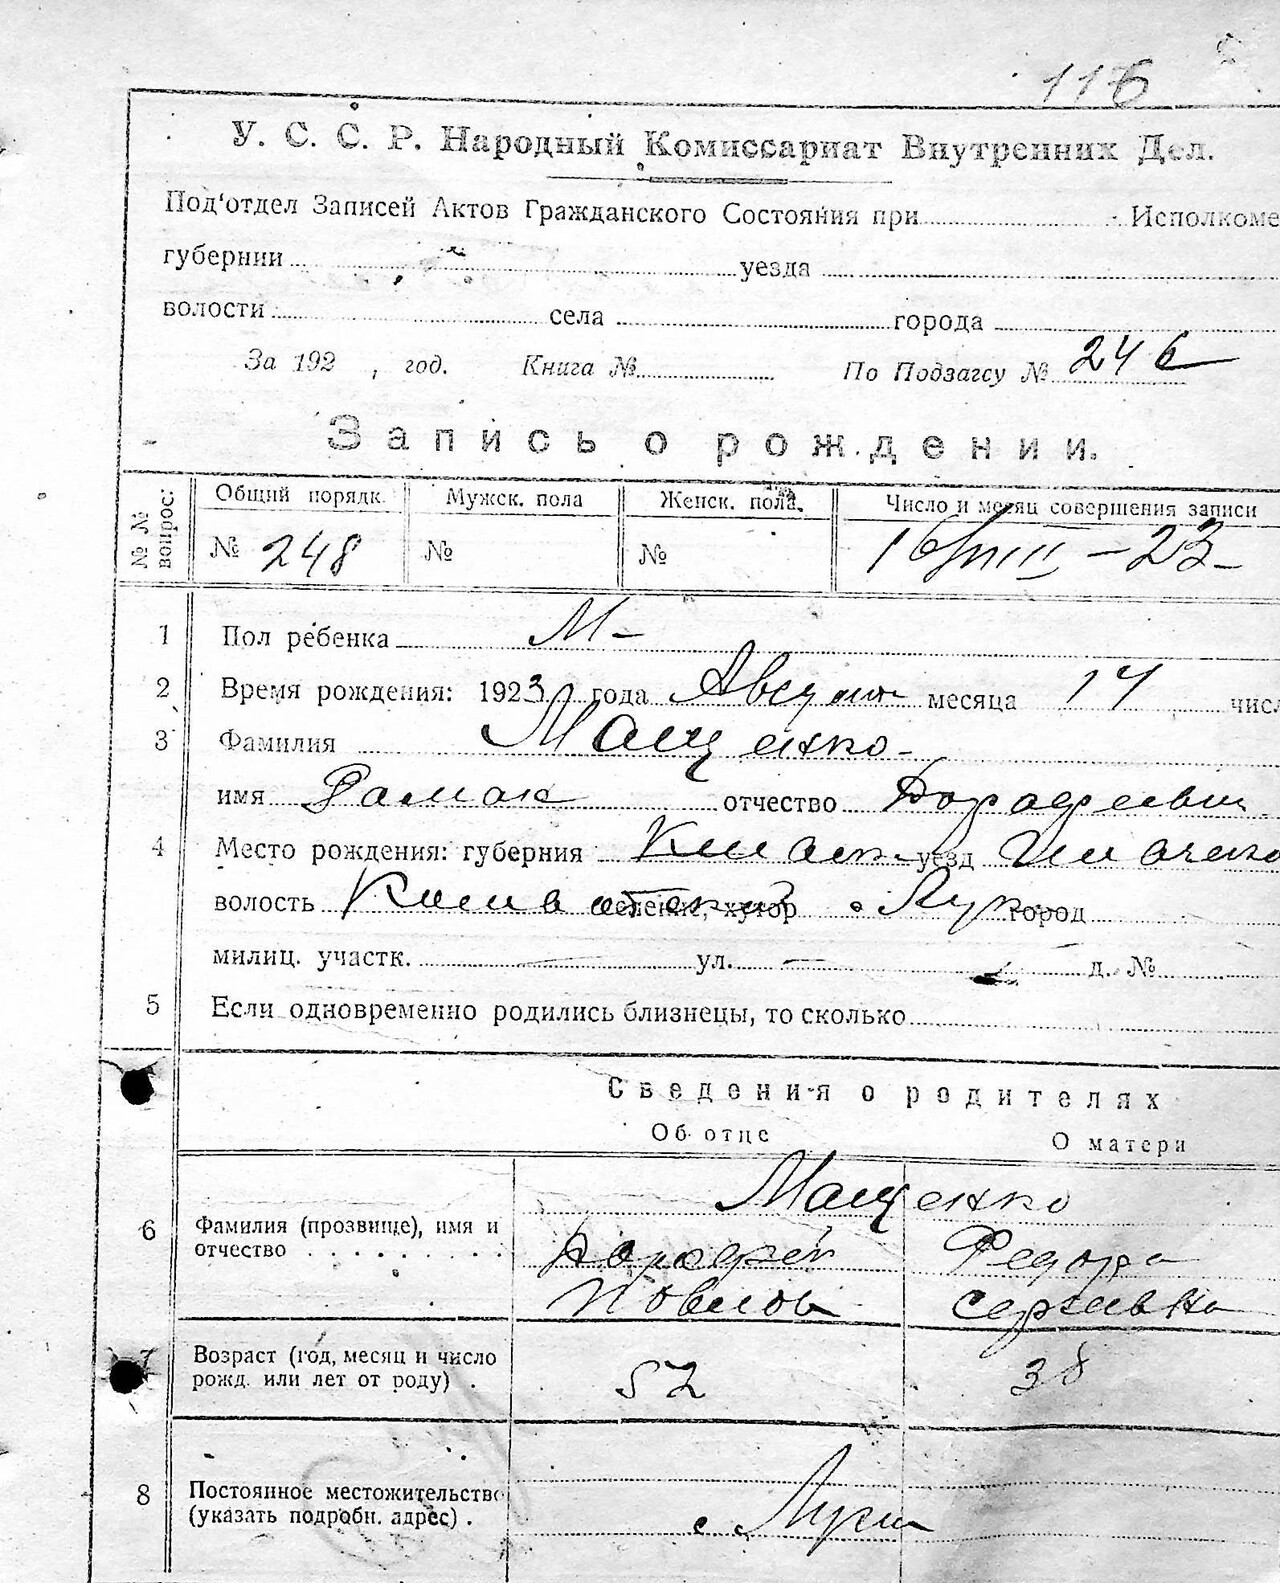 116
У. С. С. Р. Народный Комиссариат Внутренних Дел.
Под'отдел Записей Актов Гражданского Состояния при Исполкоме
губернии уезда
волости села города
За 192 , год. Книга № По Подзагсу № 246
Запись о рождении.
№ № вопрос: Общий порядк. Мужск. пола Женск. пола. Число и месяц совершения записи
№ 248 № № 16/VIII – 23
1 Пол ребенка М –
2 Время рождения: 1923 года Август месяца 14 числ
3 Фамилия Мащенко
имя Роман отчество
4 Место рождения: губерния уезд
волость селение, хутор город
милиц. участк. — ул. — д. №
5 Если одновременно родились близнецы, то сколько
Сведения о родителях
Об отце О матери
Мащенко
6 Фамилия (прозвище), имя и отчество
Дорофей Федора
Сергеевна
7 Возраст (год, месяц и число рожд. или лет от роду) . 52 38
8 Постоянное местожительство (указать подробн. адрес) . с